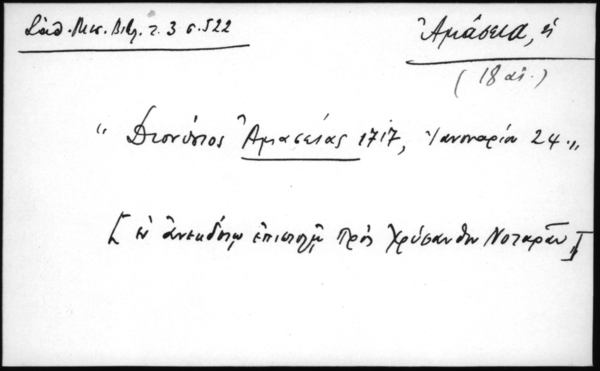 Σάθ. Μεσ. Βιβ. τ. 3 σ. 522
Ἀμάσεια, ἡ
(18 αἰ.)
" Διονύσιος Ἀμασείας 1717, Ἰανουαρίου 24 „
[ ἐν ἀνεκδότῳ ἐπιστολῇ πρὸς Χρύσανθον Νοταρᾶν ]